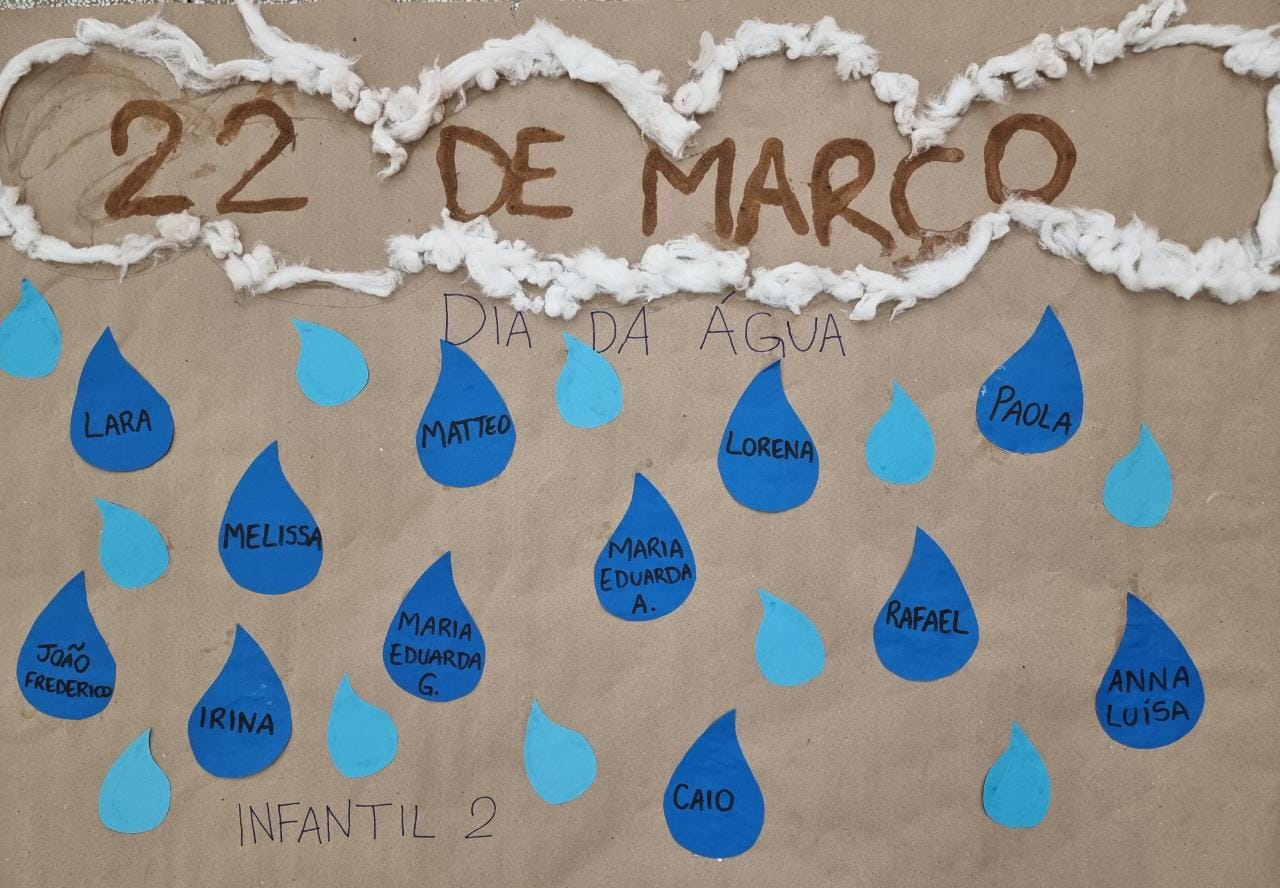 22 DE MARÇO
DIA DA ÁGUA
LARA
MATTEO
LORENA
PAOLA
MELISSA
MARIA
EDUARDA
A.
RAFAEL
JOÃO
FREDERICO
IRINA
MARIA
EDUARDA
G.
ANNA
LUÍSA
CAIO
INFANTIL 2